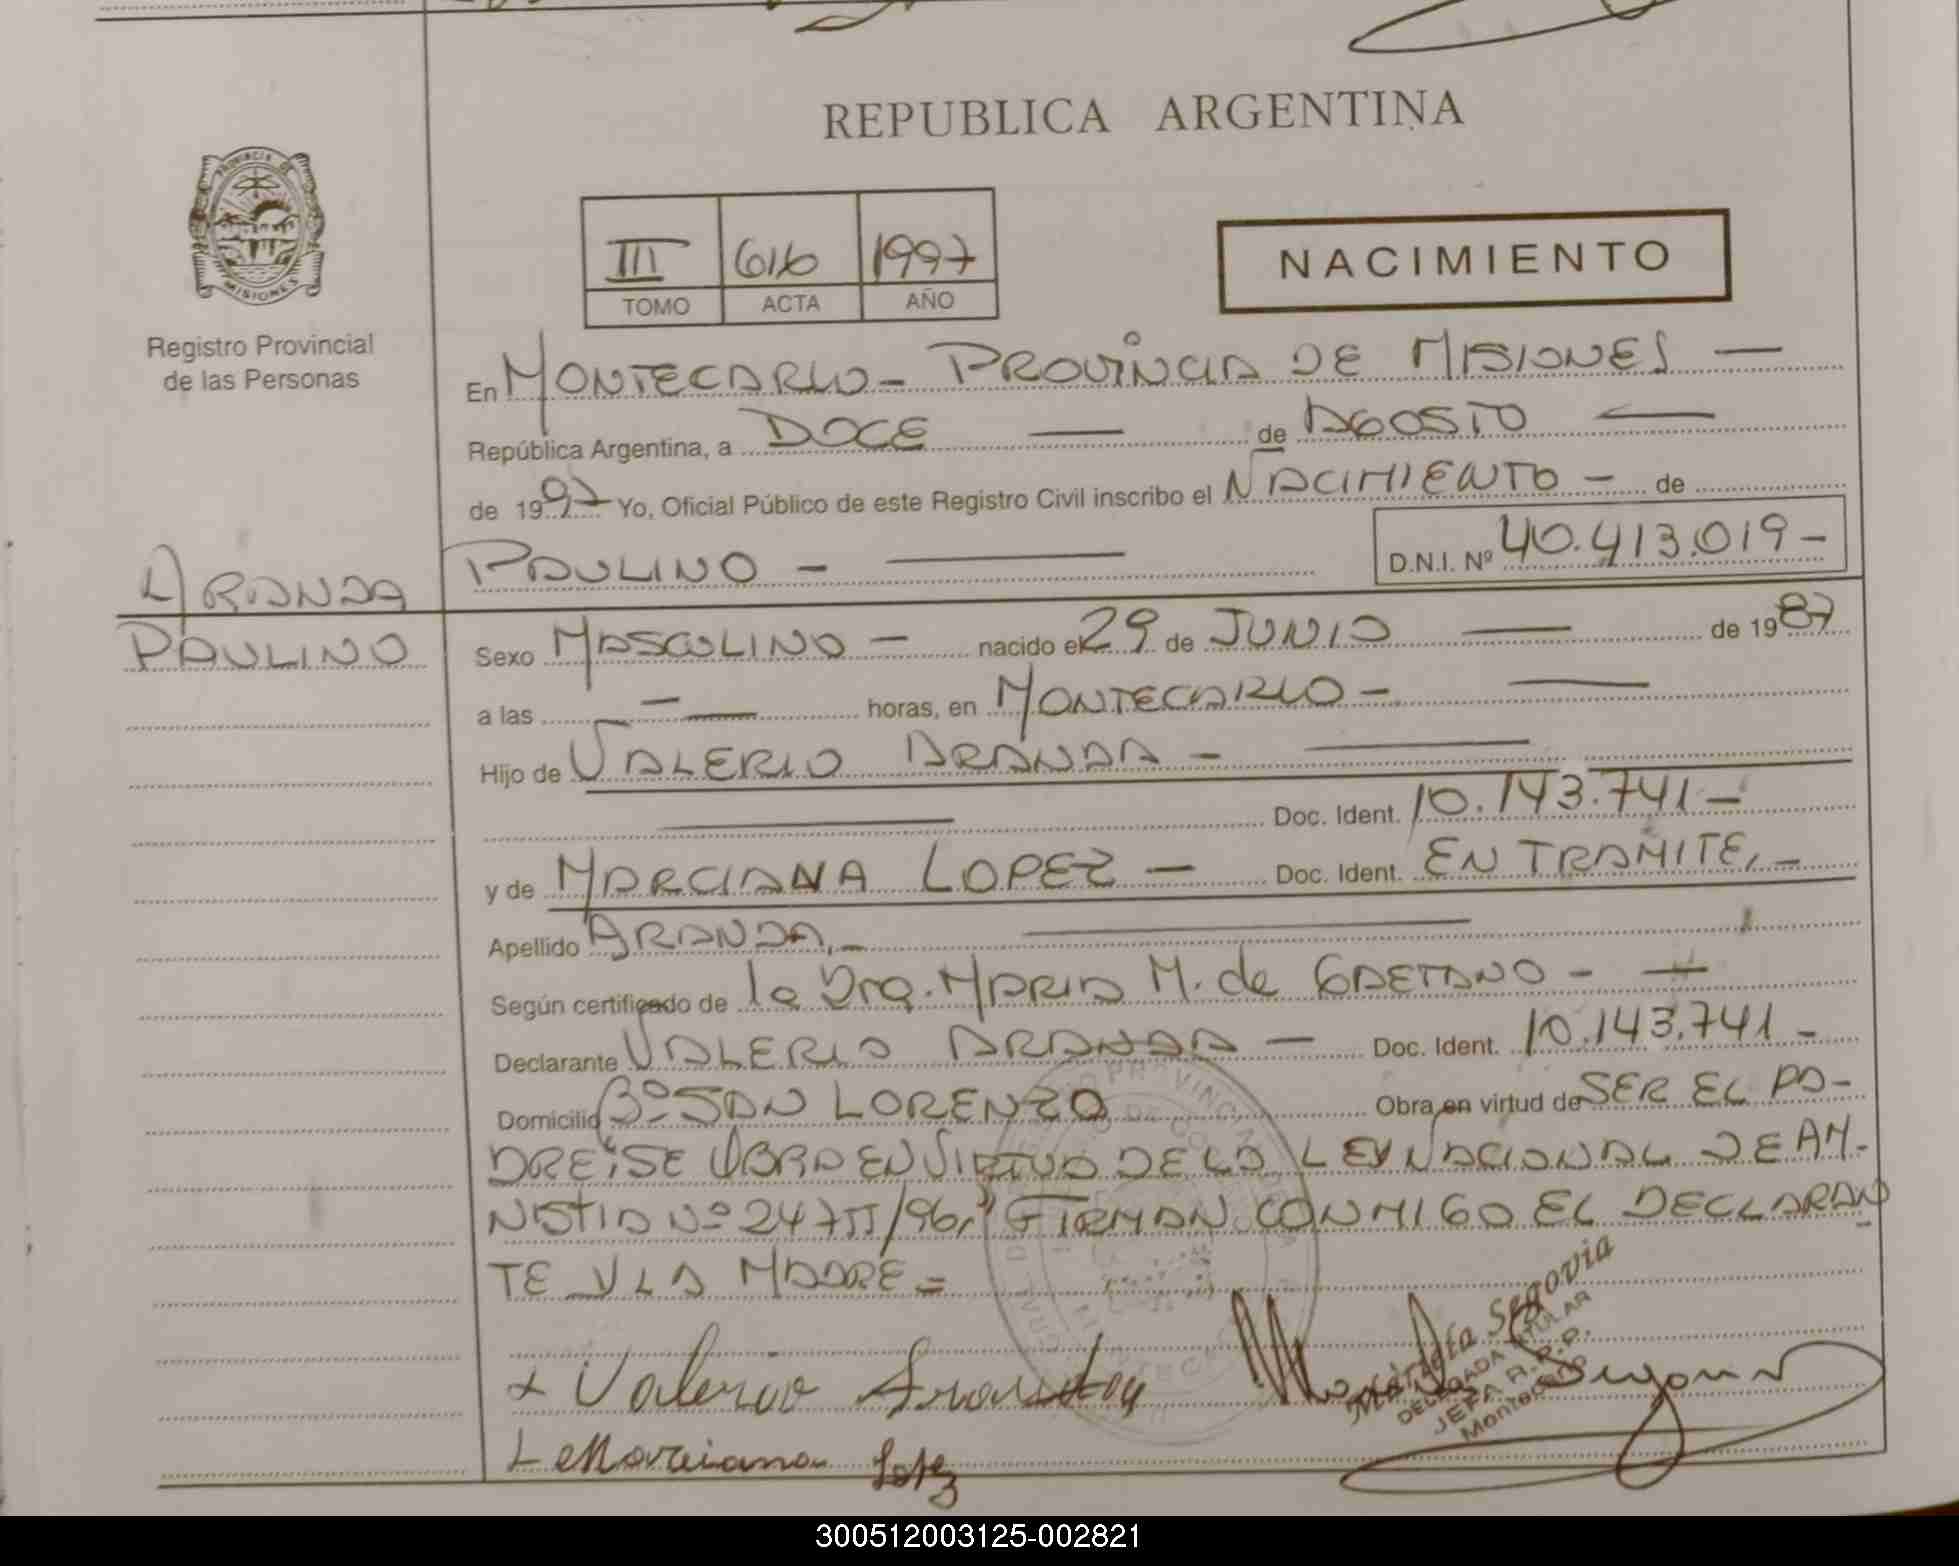 REPUBLICA ARGENTINA
PROVINCIA DE MISIONES
Registro Provincial
de las Personas
III 616 1997
TOMO ACTA AÑO
NACIMIENTO
En MONTECARLO - PROVINCIA DE MISIONES —
República Argentina, a DOCE — de AGOSTO —
de 1997 Yo, Oficial Público de este Registro Civil inscribo el NACIMIENTO - de
PAULINO - — D.N.I. Nº 40.413.019 -
ARANDA
PAULINO
Sexo MASCULINO — nacido el 29 de JUNIO — de 1987
a las — — horas, en MONTECARLO - —
Hijo de VALERIO ARANDA - —
— Doc. Ident. 10.143.741 -
y de MARCIANA LOPEZ — Doc. Ident. EN TRAMITE, -
Apellido ARANDA, - —
Según certificado de la Dra. MARIA M. de GAETANO - —
Declarante VALERIO ARANDA — Doc. Ident. 10.143.741 -
Domicilio Bº SAN LORENZO Obra en virtud de SER EL PA-
DRE; SE OBRA EN VIRTUD DE LA LEY NACIONAL DE AM-
NISTIA Nº 24755/96, FIRMAN CONMIGO EL DECLARAN
TE Y LA MADRE =
Valerio Aranda
Marciana Lopez
Segovia
DELEGADA TITULAR
JEFA R.P.P.
Montecarlo
300512003125-002821